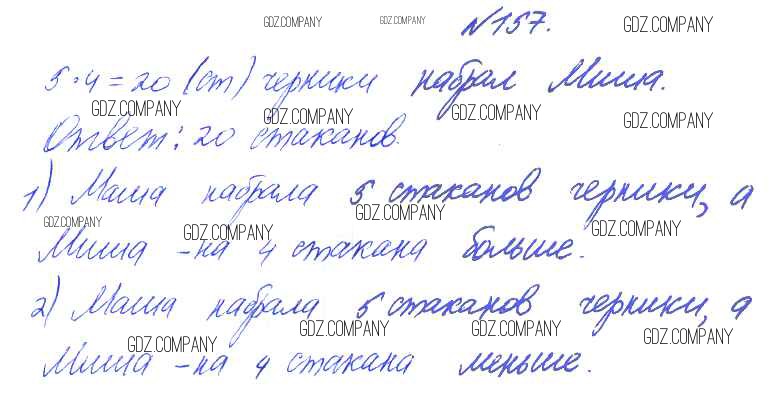 GDZ.COMPANY GDZ.COMPANY №157. GDZ.COMPANY
5·4=20 (ст) черники набрал Миша.
GDZ.COMPANY GDZ.COMPANY GDZ.COMPANY GDZ.COMPANY
Ответ: 20 стаканов.
1) Маша набрала 5 стаканов черники, а
GDZ.COMPANY GDZ.COMPANY GDZ.COMPANY GDZ.COMPANY
Миша – на 4 стакана больше.
2) Маша набрала 5 стаканов черники, а
GDZ.COMPANY GDZ.COMPANY GDZ.COMPANY GDZ.COMPANY
Миша – на 4 стакана меньше.